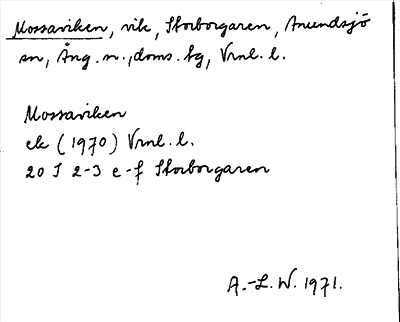 Mossaviken, vik, Storborgaren, Anundsjö
sn, Ång. n., doms. sg, Vrnl. l.
Mossaviken
ek (1970) Vrnl. l.
20 I 2-3 e-f Storborgaren
A.-L. W. 1971.